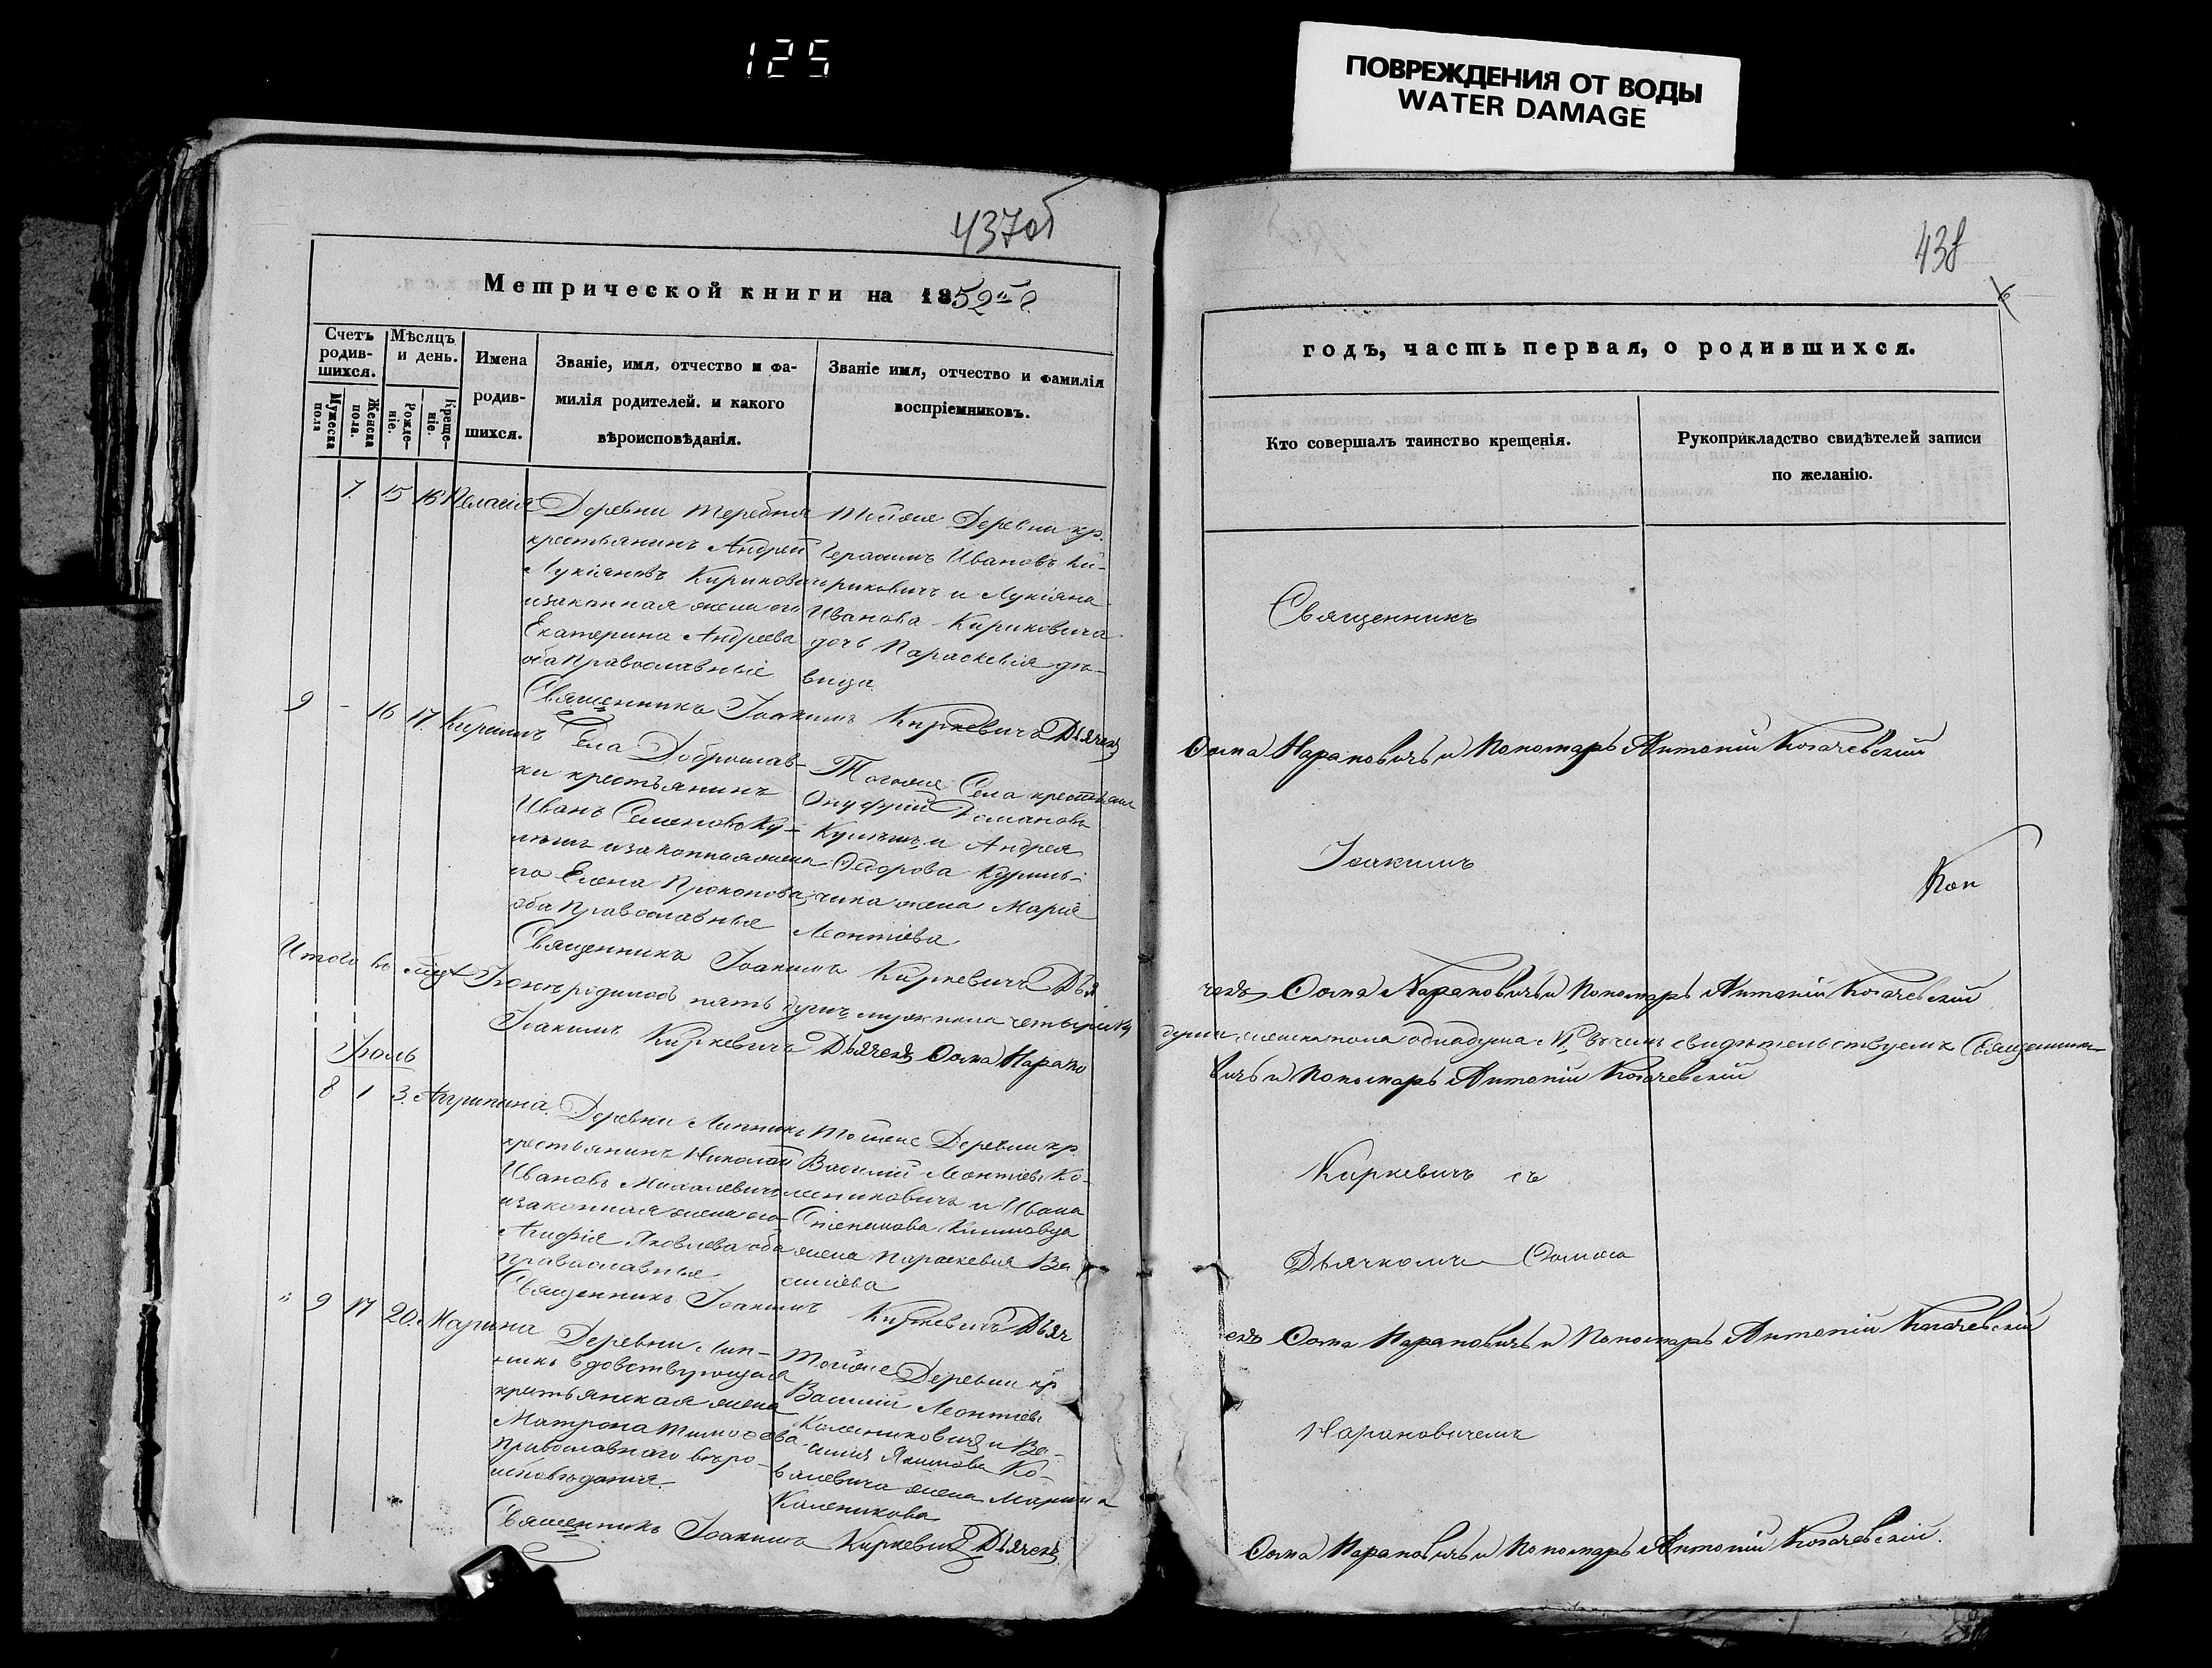 125
ПОВРЕЖДЕНИЯ ОТ ВОДЫ
WATER DAMAGE
437об
Метрической книги на 1852й г.
Счетъ родившихся.
Мужеска пола
Женска пола.
Мѣсяцъ и день.
Рождение.
Крещеніе.
Имена родившихся.
Званіе, имя, отчество и фамилія родителей. и какого вѣроисповѣданія.
Званіе имя, отчество и фамилія воспріемниковъ.
7. 15 16 Пелагія
Деревни Теребня
крестьянинъ Андрей
Лукіяновъ Кирикови
изаконная жена его
Екатерина Андреева
оба православніе
Тойже Деревни кр.
Герасимъ Ивановъ Ки-
рриковичъ и Лукіяна
Иванова Кириковича
дочь Параскевія дѣ-
вица.
Священникъ Іоакимъ Киркевичъ Дьячекъ
9 - 16 17.
Села Доброслав-
ки крестьянинъ
Иванъ Семеновъ Ку-
изаконная жена
его Елена Прокопова
оба православные
Тогоже Села крестьяне
Онуфрій Романовъ
и Андрея
Ѳедорова Куриль-
чика жена Марія
Леонтіева
Священникъ Іоакимъ Киркевичъ Дья
Итого въ
родилось пять душъ муж пола четыри
Іоакимъ Киркевичъ Дьячекъ Ѳома Нарано
Іюль
8 1 3. Агрипина.
Деревни Липникъ
крестьянинъ Николай
Ивановъ Михалевичъ
изаконная жена его
Агафія Яковлева оба
православные
Тойже Деревни кр.
Василій Леонтіевъ Ко-
лениковичъ и Ивана
Степанова Климовца
жена Параскевія Ва
силіева
Священникъ Іоакимъ Киркевичъ Дьяч
" 9 17 20. Марина
Деревни Лип-
никъ вдовствующая
крестьянская жена
Матрона Тимоѳеева
Православнаго вѣро-
исповѣданія.
Тойже Деревни кр
Василій Леонтіевъ
Калениковичъ и Ва-
силія Якимова Ко-
валевича жена Марина
Каленикова
Священникъ Іоакимъ Киркевичъ Дьячекъ
438
годъ, часть первая, о родившихся.
Кто совершалъ таинство крещенія.
Рукоприкладство свидѣтелей записи по желанію.
Священникъ
Ѳома Нарановичъ и Пономарь Антоній Когачевскій
Іоакимъ
Коп
чекъ Ѳома Нарановичъ и Пономарь Антоній Когачевскій
души, женска пола одна душа въ чемъ свидѣтельствуемъ Священник
вичъ и Пономарь Антоній Когачевскій
Киркевичъ съ
Дьячкомъ Ѳомою
екъ Ѳома Нарановичъ и Пономарь Антоній Когачевскій
Нарановичемъ
Ѳома Нарановичъ и Пономарь Антоній Когачевскій.